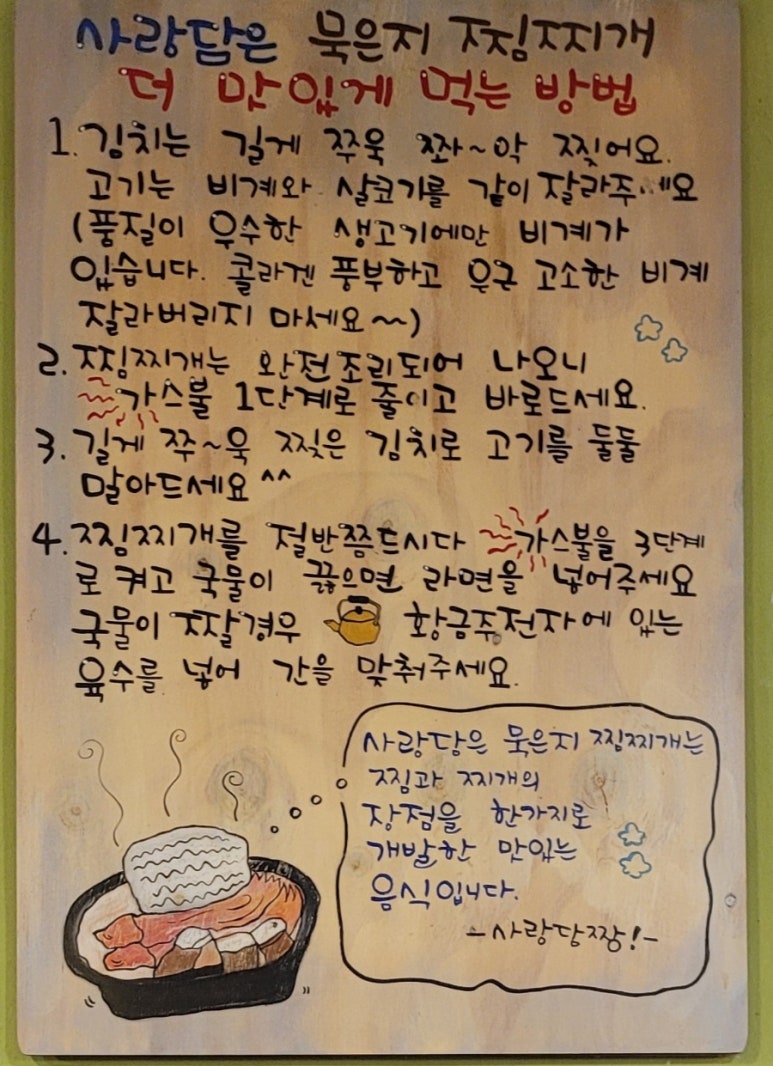 사랑담은 묵은지 찜찌개
더 맛있게 먹는 방법
1. 김치는 길게 쭈욱 쫘~악 찢어요.
고기는 비계와 살코기를 같이 잘라주세요
(품질이 우수한 생고기에만 비계가
있습니다. 콜라겐 풍부하고 유근 고소한 비계
잘라버리지 마세요~)
2. 찜찌개는 완전조리되어 나오니
가스불 1단계로 줄이고 바로드세요.
3. 길게 쭈~욱 찢은 김치로 고기를 둘둘
말아드세요^^
4. 찜찌개를 절반쯤드시다 가스불을 3단계
로 켜고 국물이 끓으면 라면을 넣어주세요
국물이 짜잘경우 황금주전자에 있는
육수를 넣어 간을 맞춰주세요.
사랑담은 묵은지 찜찌개는
찜과 찌개의
장점을 한가지로
개발한 맛있는
음식입니다.
-사랑담짱!-